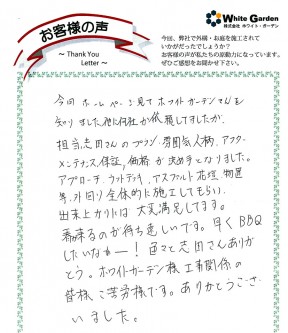 お客様の声
～ Thank You
Letter ～
White Garden
株式会社 ホワイト・ガーデン
今回、弊社で外構・お庭を施工されて
いかがだったでしょうか？
お客様の声が私たちの原動力になっています。
ぜひご感想をお聞かせ下さい。
今回ホームページ見てホワイトガーデンさんを
知りました。他に何社か依頼してましたが、
担当志田さんのプラン、雰囲気、人柄、アフター
メンテナンス、保証、価格が決め手となりました。
アプローチ、ウッドデッキ、アスファルト、花壇、物置
等、外回り全体的に施工してもらい、
出来上がりには大変満足してます。
春来るのが待ち遠しいです。早くBBQ
したいなぁー！色々と志田さんありが
とう。ホワイトガーデン様、工事関係の
皆様ご苦労様です。ありがとうござ
いました。